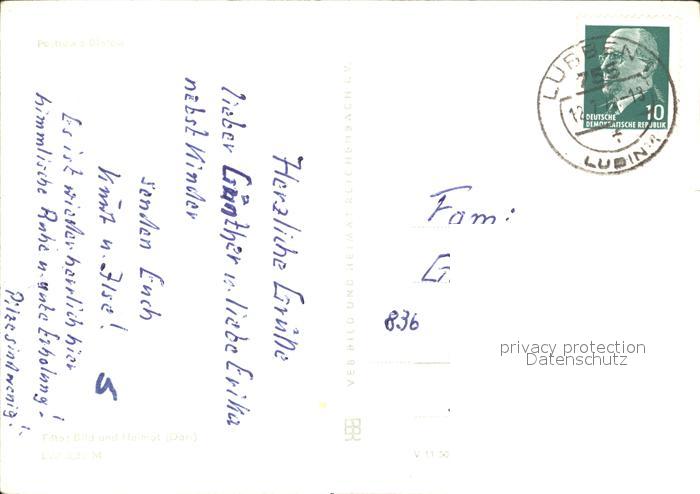 Herzliche Grüße
lieber Günther u. liebe Erika
nebst Kinder
senden Euch
Kurt u. Ilse!
Es ist wieder herrlich hier
himmlische Ruhe u. gute Erholung!
Pilze sind wenig!
Fotos Bild und Heimat (Darr)
VEB BILD UND HEIMAT REICHENBACH I. V.
V 11 50
Fam:
G
836
privacy protection
Datenschutz
LÜBBEN
755
LUBIN
10
DEUTSCHE
DEMOKRATISCHE REPUBLIK